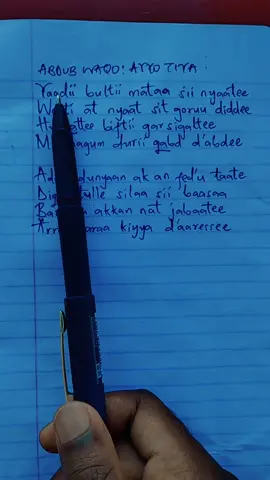 ABDUB WAQO: AYYO TIYA:
Yaadii bultii mataa sii nyaatee
at nyaat sit goruu diddee
biftii garsigattee
durii gabd d'abdee
dunyaan ak an fed'u taate
silaa sii baasaa
akkan nat jabaatee
kiyya d'aaressee